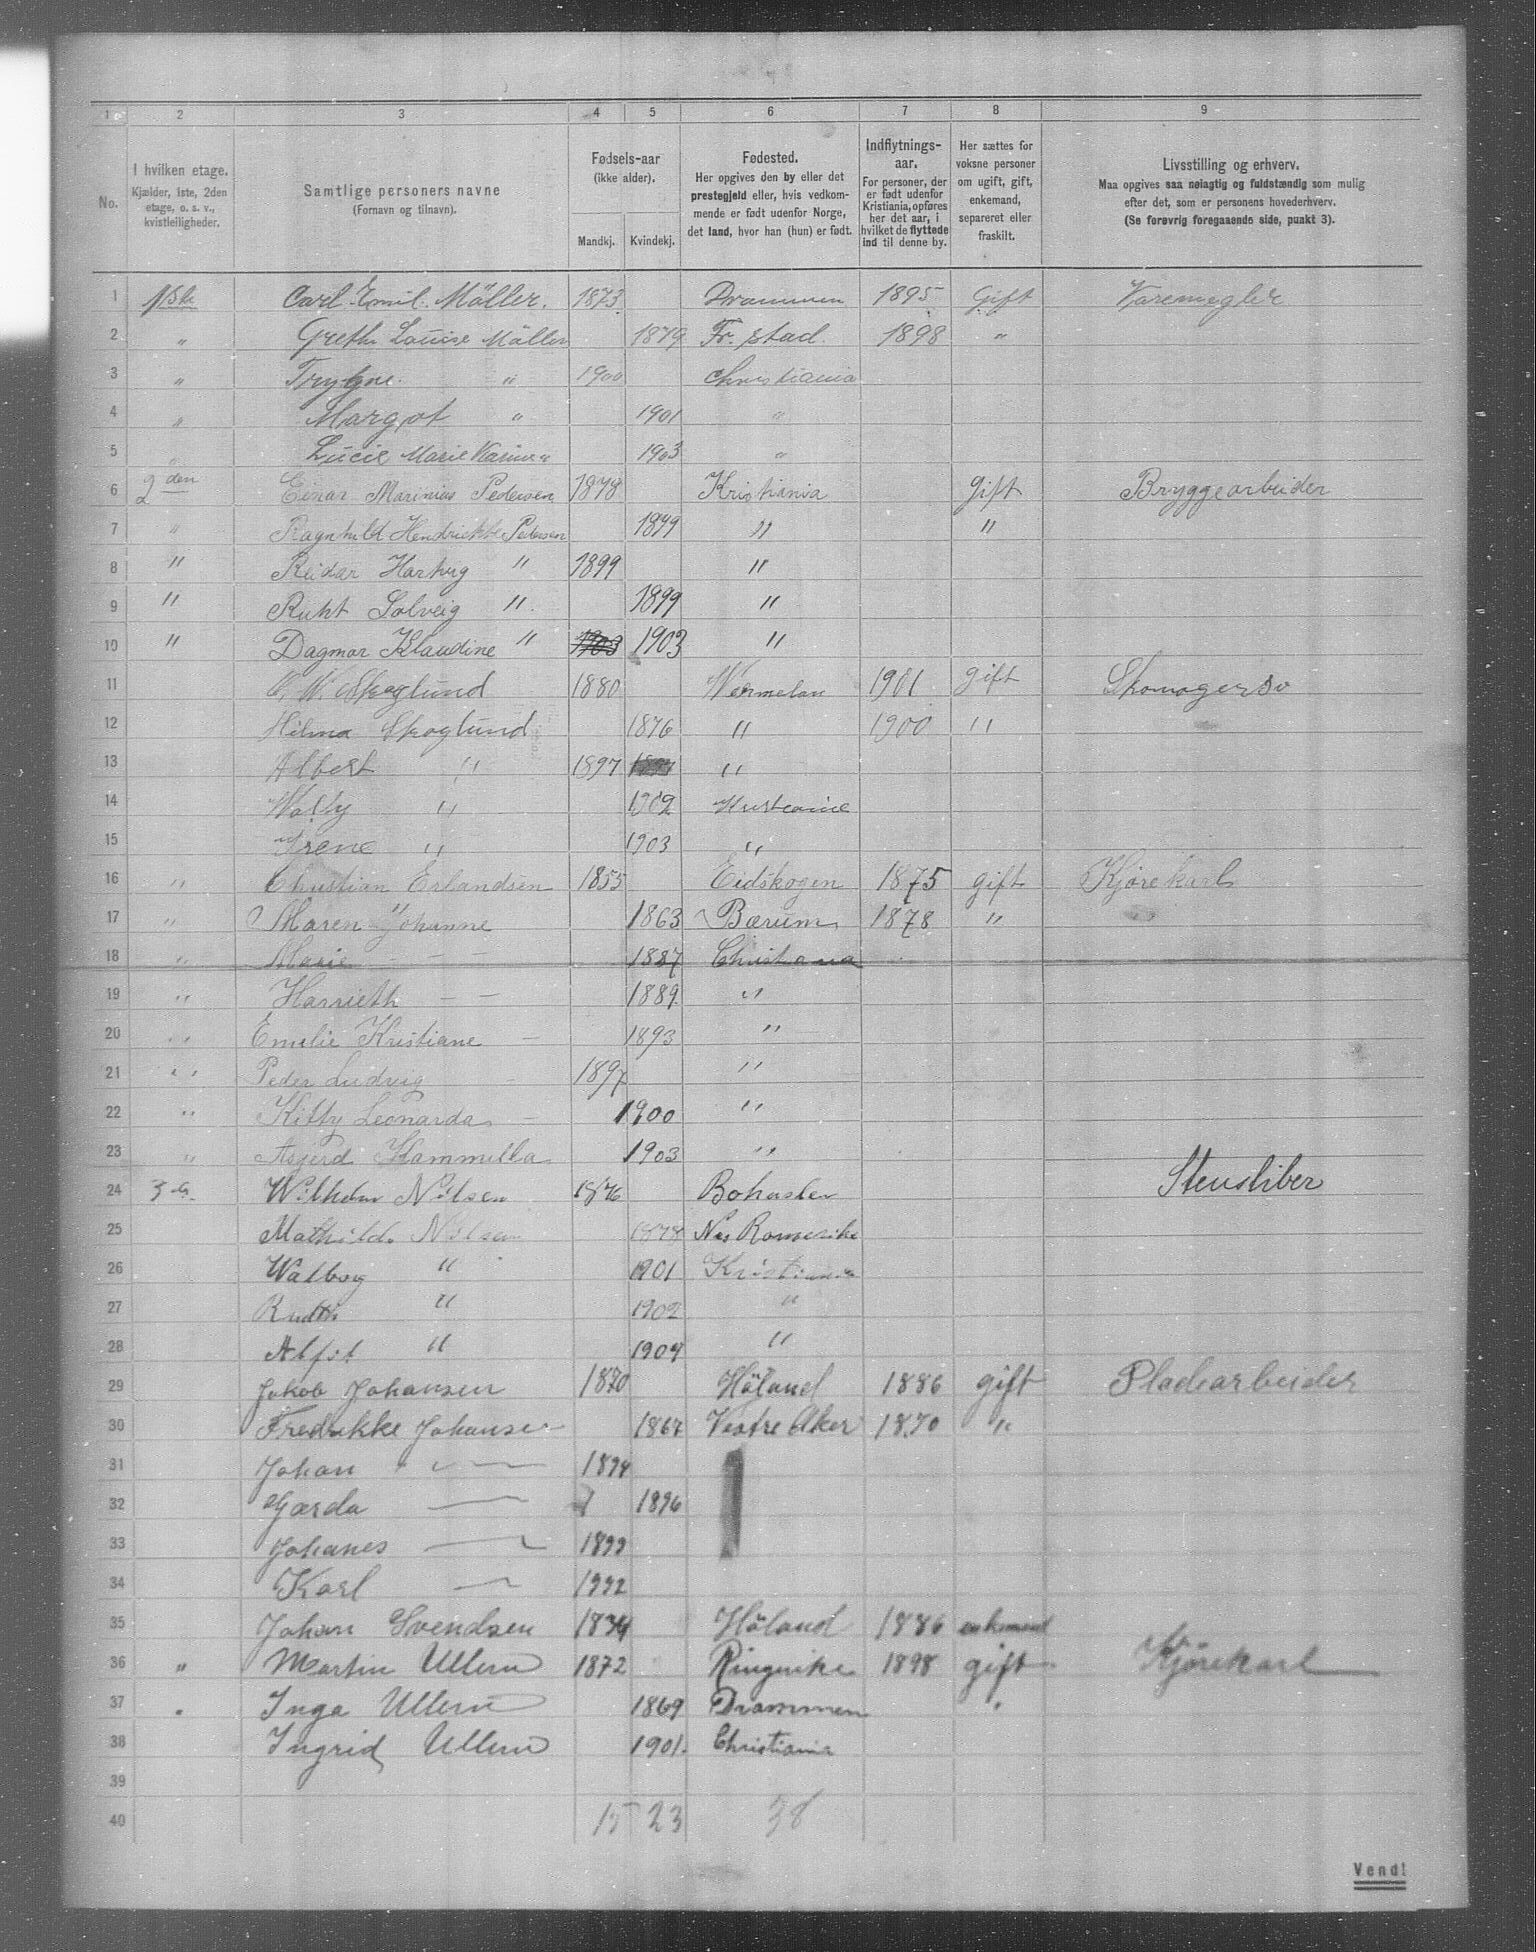 1 2 3 4 5 6 7 8 9
No.
I hvilken etage.
Kjælder, 1ste, 2den
etage, o. s. v.,
kvistleiligheder.
Samtlige personers navne
(Fornavn og tilnavn).
Fødsels-aar
(ikke alder).
Mandkj. Kvindekj.
Fødested.
Her opgives den by eller det
prestegjeld eller, hvis vedkom-
mende er født udenfor Norge,
det land, hvor han (hun) er født.
Indflytnings-
aar.
For personer, der
er født udenfor
Kristiania, opføres
her det aar, i
hvilket de flyttede
ind til denne by.
Her sættes for
voksne personer
om ugift, gift,
enkemand,
separeret eller
fraskilt.
Livsstilling og erhverv.
Maa opgives saa nøiagtig og fuldstændig som mulig
efter det, som er personens hovederhverv.
(Se forøvrig foregaaende side, punkt 3).
1 1ste Carl Emil Møller. 1873 Drammen 1895 Gift Varemegler
2 " Grethe Louise Møller 1879 Fr. stad. 1898 "
3 " Trygve " 1900 Christiania
4 " Margot " 1901 "
5 " Lucie Marie Karine " 1903 "
6 2den Einar Marinius Pedersen 1878 Kristiania Gift Bryggearbeider
7 " Ragnhild Hendrikke Pedersen 1879 " "
8 " Reidar Hartvig " 1899 "
9 " Ruht Solveig " 1899 "
10 " Dagmar Klaudine " 1903 1903 "
11 Skoglund 1880 Vermelan 1901 gift Skomagersv
12 Hilma Skoglund 1876 " 1900 "
13 Albert " 1897 "
14 Wally " 1902 Kristianie
15 Irene " 1903 "
16 " Christian Erlandsen 1855 Eidskogen 1875 gift Kjørekarl
17 " Maren Johanne " 1863 Bærum 1878 "
18 " Marie - - - 1887 Christiania
19 " Harrieth - - 1889 "
20 " Emelie Kristiane - 1893 "
21 " Peder Ludvig - 1897 "
22 " Kitty Leonarda - 1900 "
23 " Asjerd Kammilla 1903 "
24 3de Wilhelm Nilsen 1876 Bohuslen Stensliber
25 Mathilde Nilsen 1878 Nes Romerike
26 Walbog " 1901 Kristiania
27 Ruth " 1902 "
28 " 1904 "
29 Jakob Johansen 1870 Höland 1886 gift Pladearbeider
30 Fredrikke Johansen 1867 Vestre Aker 1870 "
31 Johan " 1894
32 Gærda - 1896
33 Johanes - 1899
34 Karl - 1902
35 Johan Svendsen 1834 Höland 1886 enkemand
36 " Martin Ullern 1872 Ringerike 1898 gift Kjørekarl
37 " Inga Ullern 1869 Drammen "
38 Ingrid Ullern 1901 Christiania
39
40 15 23 38
Vend!